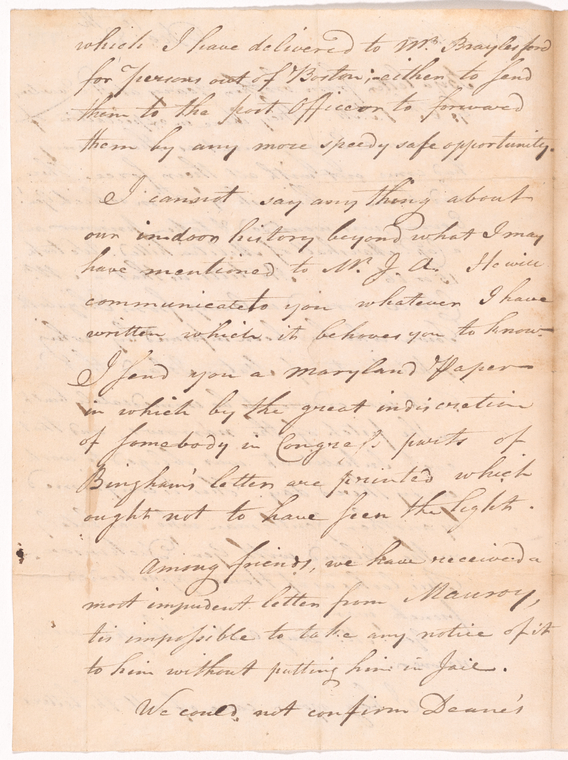 which I have delivered to Mr. Braylesford
for Persons out of Boston, either to send
them to the post Office or to forward
them by any more speedy safe opportunity.
I cannot say any thing about
our indoor history beyond what I may
have mentioned to Mr. J. A. He will
communicate to you whatever I have
written which it behoves you to know.
I send you a Maryland Paper
in which by the great indiscretion
of somebody in Congress parts of
Bingham's letter are printed which
ought not to have seen the light.
Among friends, we have received a
most impudent letter from Mauroy,
tis impossible to take any notice of it
to him without putting him in Jail.
We could not confirm Deane's